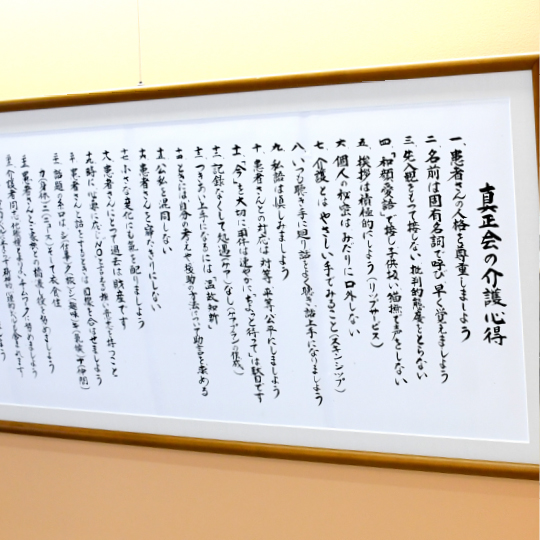 真正会の介護心得
一、患者さんの人格を尊重しましよう
二、名前は固有名詞で呼び早く覚えましよう
三、先入観をもって接しない批判的態度をとらない
四、「和顔愛語」で接し子供扱い猫撫で声をしない
五、挨拶は積極的にしよう(リップサービス)
六、個人の秘密はみだりに口外しない
七、介護とはやさしい手でみること(スキンシップ)
八、いつも聴き手に廻り話をよく聴き話上手になりましよう
九、私語は慎しみましよう
十、患者さんとの対応は対等・平等・公平にしましよう
十一、「今」を大切に用件は速やかに「ちよっと待って」は駄目です
十二、記録なくして処遇(ケア)なし
十三、つきあい上手になるには「温故知新」
十四、ときには自分の考えや援助の方法について助言を求める
十五、公私を混同しない
十六、患者さんを寝たきりにしない
十七、小さな変化にも気を配りましよう
十八、患者さんにとって過去は財産です
十九、時に必要に応じNOと言える思い遣りを持つこと
二十、患者さんと話をするときは目線を合はせましよう